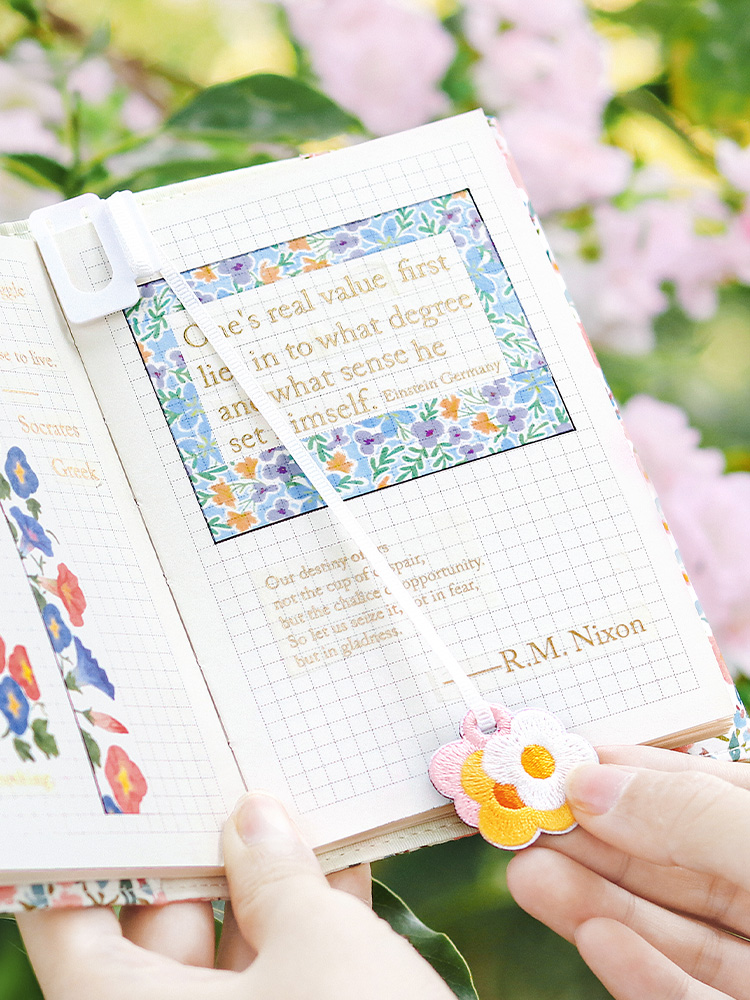 to live.
Socrates
Greek
One's real value first
lies in to what degree
and what sense he
set himself. Einstein Germany
Our destiny offers
not the cup of despair,
But the chalice of opportunity.
So let us seize it, not in fear,
but in gladness.
——R.M. Nixon